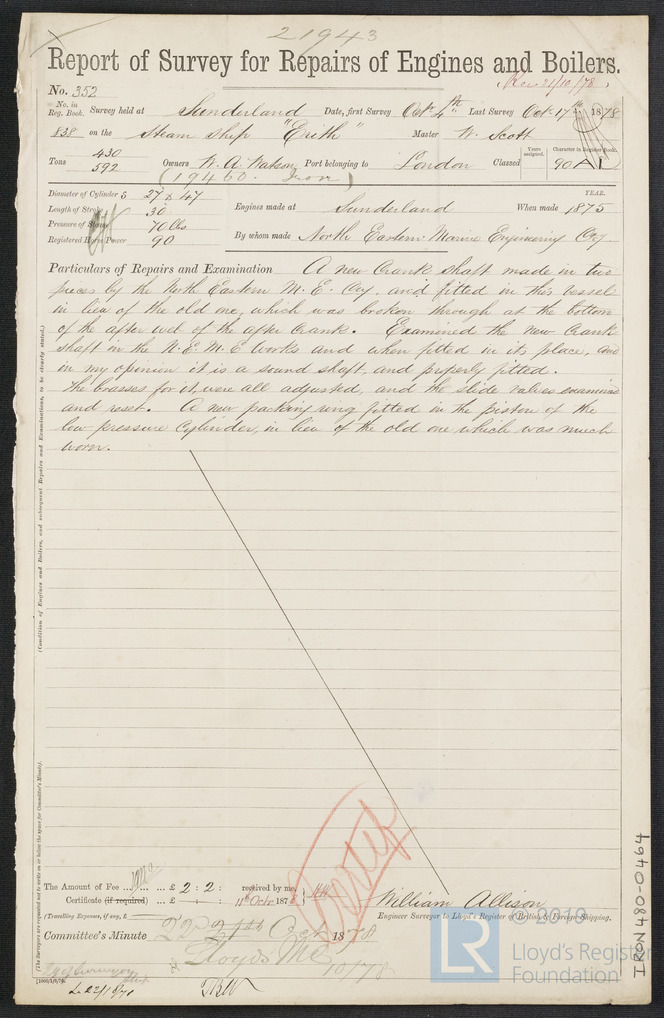 21943
Report of Survey for Repairs of Engines and Boilers.
No. 352
Rec 21/10/78
No. in Reg. Book. Survey held at Sunderland Date, first Survey Oct 4th Last Survey Oct 17th 1878
838 on the Steam Ship "Erith" Master W. Scott
Tons 430 592 Owners W. A. Watson Port belonging to London Classed Years assigned. 90 Character in Register Book. A1
(19450. Iron)
Diameter of Cylinders 27 & 47
Length of Stroke 30
Pressure of Steam 70 lbs
Registered Horse Power 90
Engines made at Sunderland When made YEAR. 1875
By whom made North Eastern Marine Engineering Coy
Particulars of Repairs and Examination A new Crank shaft made in two
pieces by the North Eastern M. E. Coy. and fitted in this vessel
in lieu of the old one, which was broken through at the bottom
of the after web of the after Crank. Examined the new Crank
shaft in the N. E. M. E Works and when fitted in its place, and
in my opinion it is a sound shaft, and properly fitted.
The brasses for it, were all adjusted, and the slide valves examined
and reset. A new packing ring fitted in the piston of the
low pressure Cylinder, in lieu of the old one which was much
worn.
(Condition of Engines and Boilers, and subsequent Repairs and Examinations, to be clearly stated.)
(The Surveyors are requested not to write on or below the space for Committee's Minute).
The Amount of Fee ... £ 2 : 2 : received by me,
Certificate (if required) ... £ : : 18th Octr 1878
(Travelling Expenses, if any, £
William Allison
Engineer Surveyor to Lloyd's Register of British & Foreign Shipping.
Committee's Minute 22nd Oct 1878
Lloyds MC 10/78
Engr Surveyor
22/10/78
[1000/3/9/76]
IRON480-0464
© 2019
LR
Lloyd's Register
Foundation